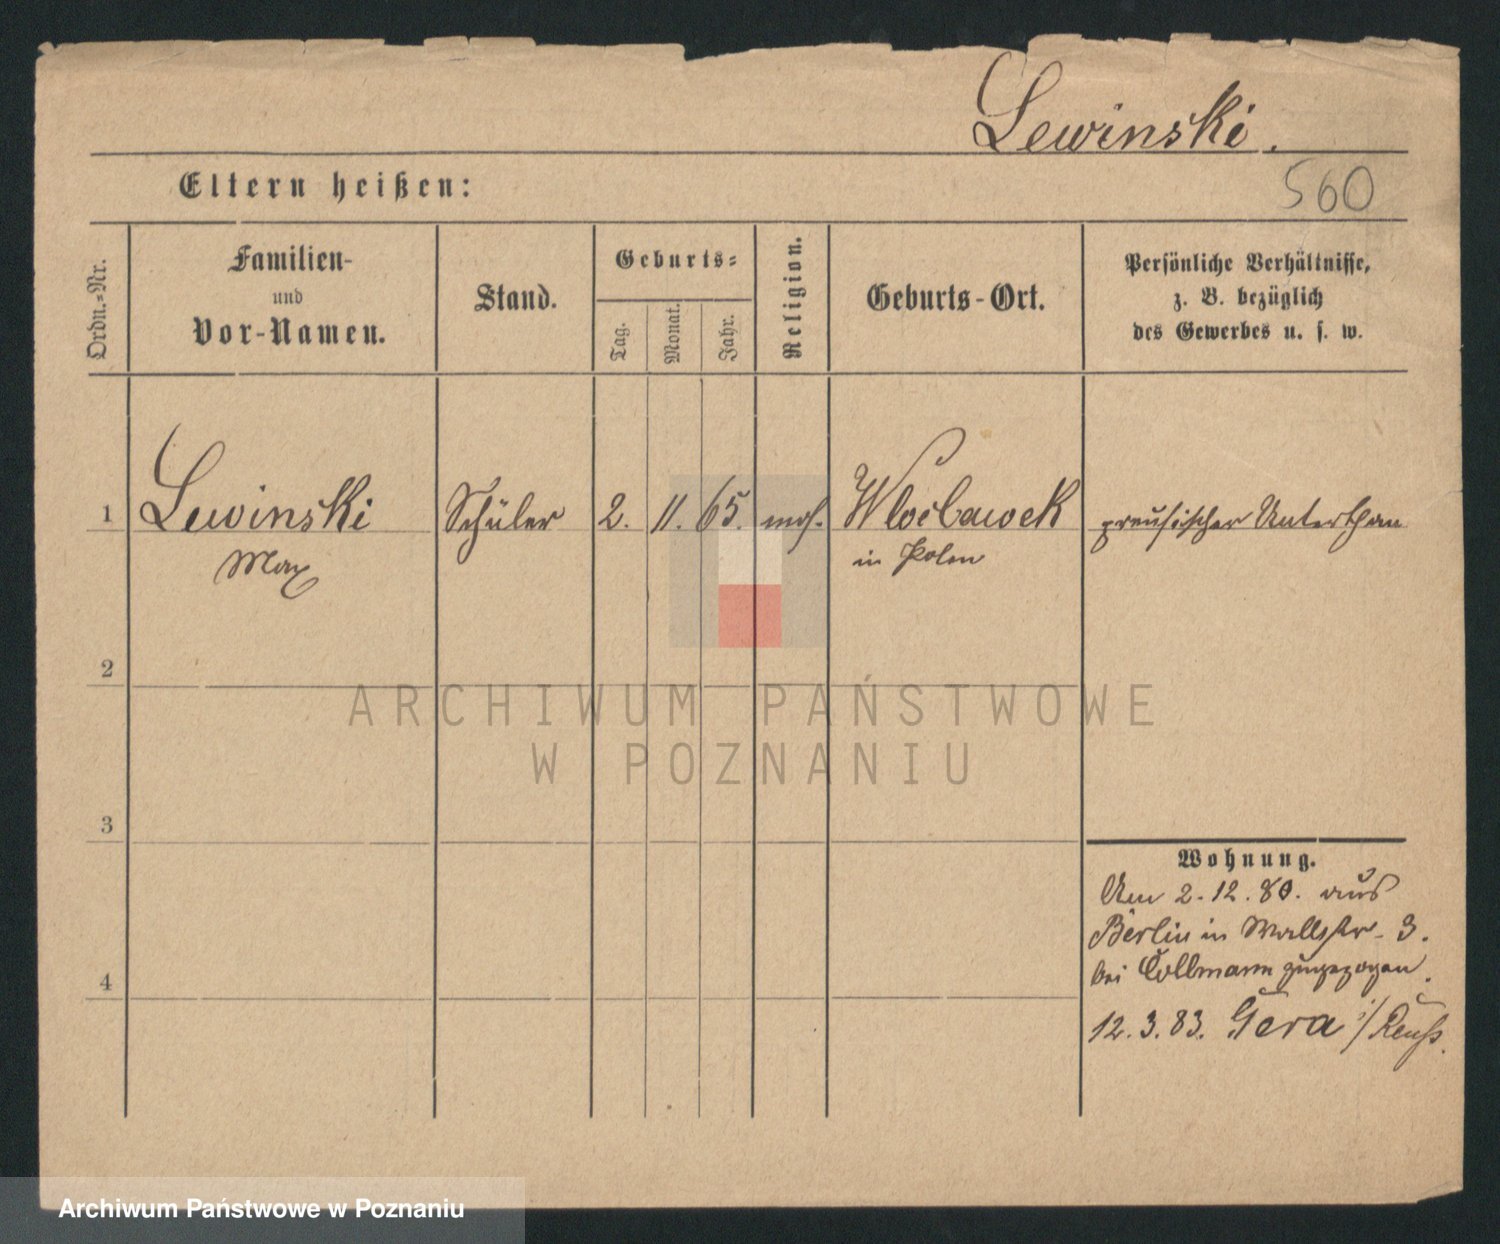 Lewinski.
Eltern heißen:
560
Ordn.-Nr.
Familien-
und
Vor-Namen.
Stand.
Geburts-
Tag.
Monat.
Jahr.
Religion.
Geburts-Ort.
Persönliche Verhältnisse,
z. B. bezüglich
des Gewerbes u. s. w.
1 Lewinski Schüler 2. 11. 65. mos. Wloclawek preußischer Unterthan
Max in Polen
2
ARCHIWUM PAŃSTWOWE
W POZNANIU
3
Wohnung.
Am 2.12.80. aus
Berlin in Wallstr. 3.
bei Collmann zugezogen.
4
12.3.83. Gera i/Reuß.
Archiwum Państwowe w Poznaniu